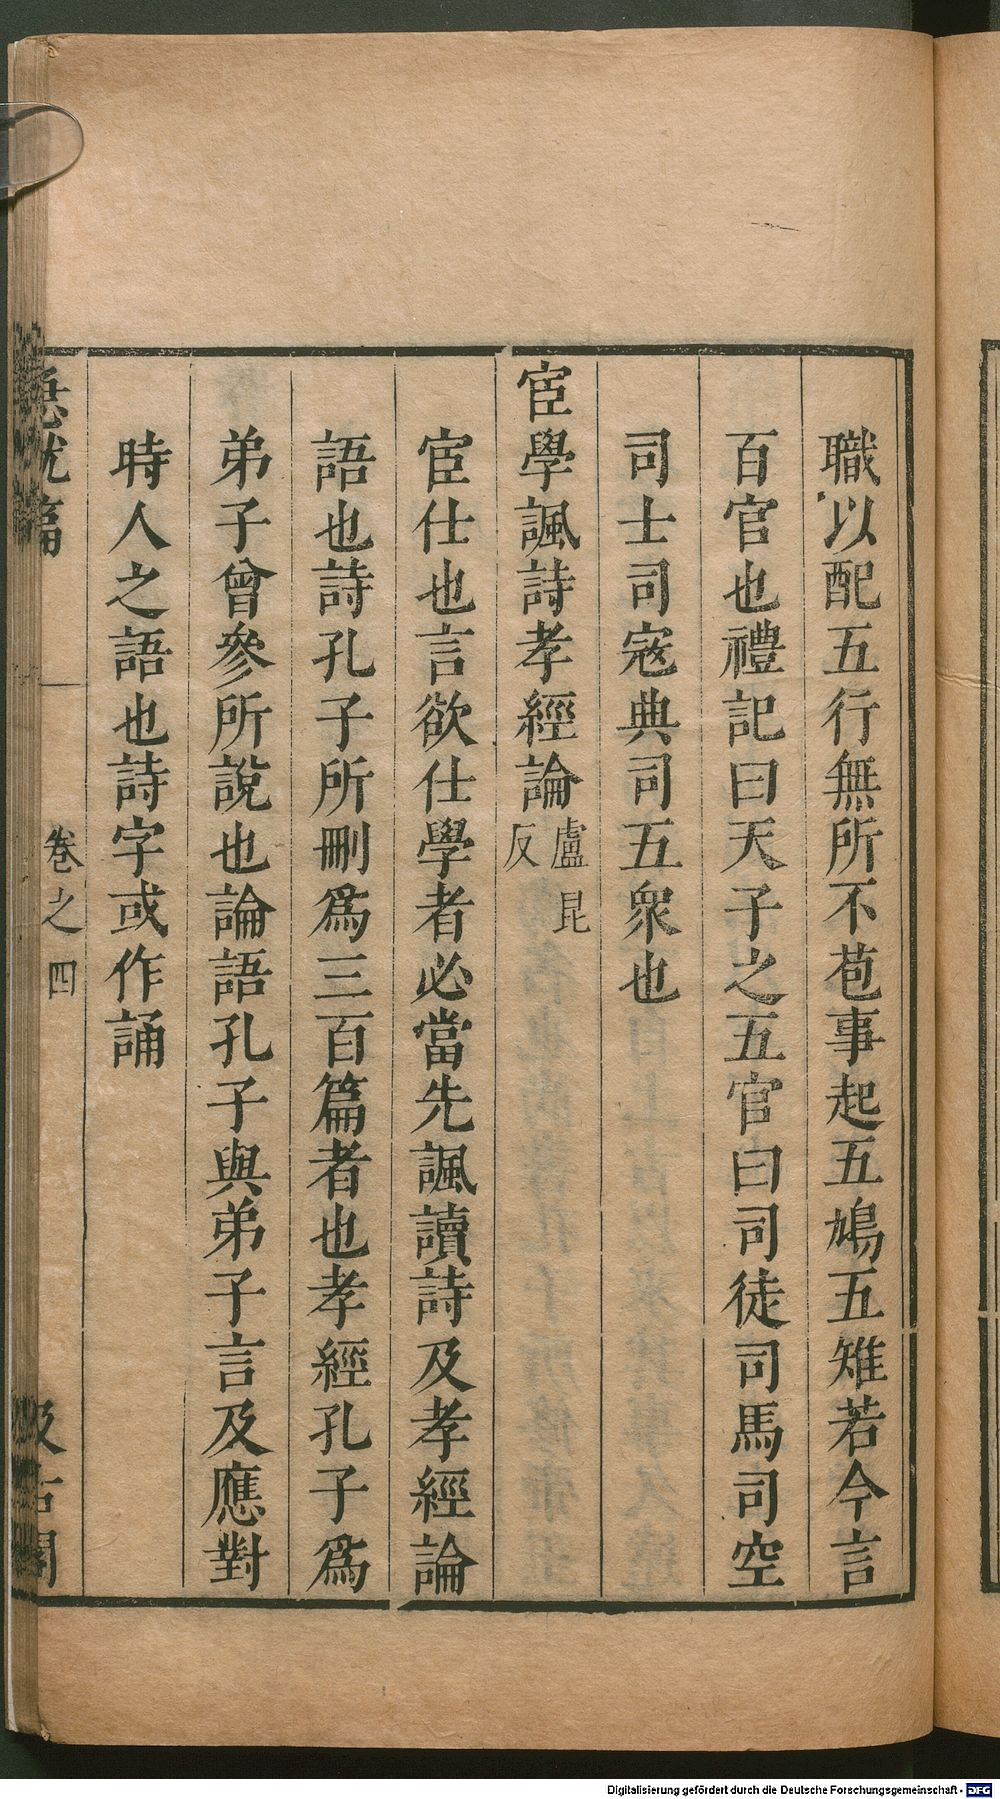 職以配五行無所不苞事起五鳩五雉若今言
百官也禮記曰天子之五官曰司徒司馬司空
司士司寇典司五衆也
宦學諷詩孝經論盧昆反
宦仕也言欲仕學者必當先諷讀詩及孝經論
語也詩孔子所刪爲三百篇者也孝經孔子爲
弟子曾參所說也論語孔子與弟子言及應對
時人之語也詩字或作誦
急就篇
卷之四
汲古閣
Digitalisierung gefördert durch die Deutsche Forschungsgemeinschaft - DFG